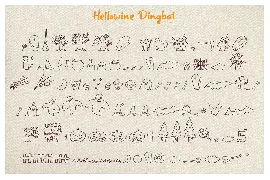 Hellowine Dingbat